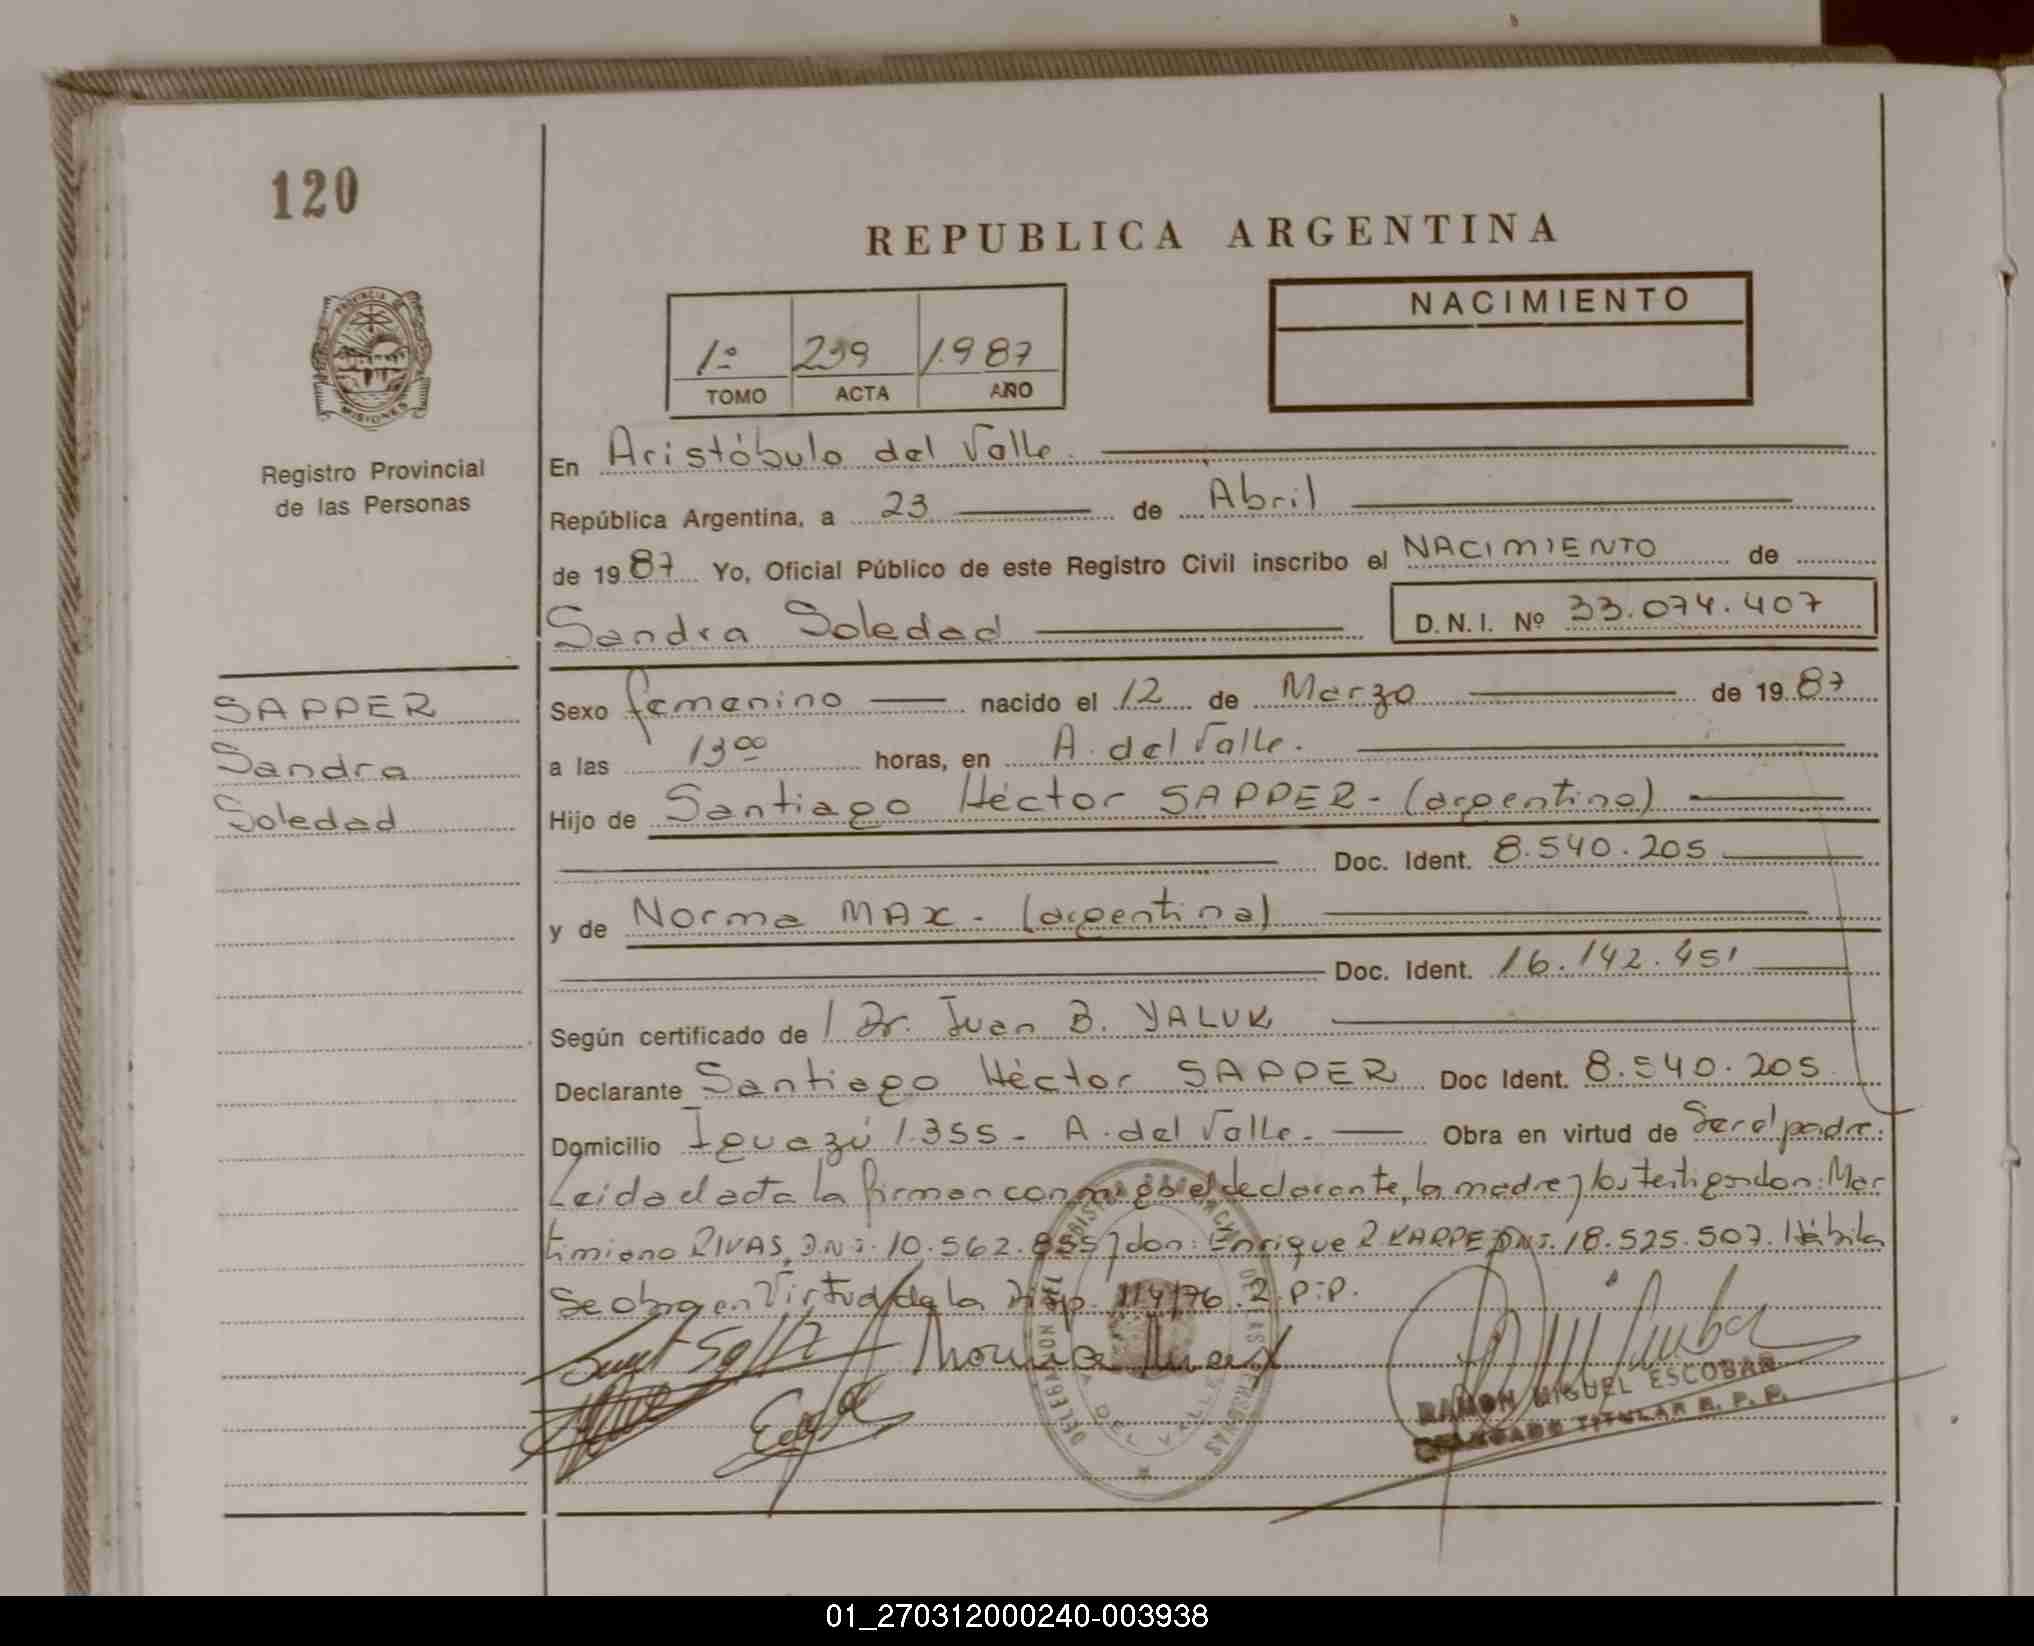 120
REPUBLICA ARGENTINA
PROVINCIA DE
MISIONES
Registro Provincial
de las Personas
1º 239 1.987
TOMO ACTA AÑO
NACIMIENTO
En Aristóbulo del Valle.
República Argentina, a 23 de Abril
de 1987 Yo, Oficial Público de este Registro Civil inscribo el NACIMIENTO de
Sandra Soledad D.N.I. Nº 33.074.407
SAPPER
Sandra
Soledad
Sexo femenino nacido el 12 de Marzo de 1987
a las 13 00 horas, en A. del Valle.
Hijo de Santiago Héctor SAPPER - (argentino)
Doc. Ident. 8.540.205
y de Norma MAX - (argentina)
Doc. Ident. 16.142.451
Según certificado de Dr. Juan B. YALUK
Declarante Santiago Héctor SAPPER Doc Ident. 8.540.205
Domicilio Iguazú 1.355 - A. del Valle. Obra en virtud de Ser el padre.
Leida el acta la firman conmigo el declarante, la madre y los testigos don: Mar
timiano RIVAS, D.N.I. 10.562.855 y don: Enrique R KARPE DNI. 18.525.507. Hábiles
Se obra en Virtud de la Disp. 114/76. R.P.P.
RAMON MIGUEL ESCOBAR
DELEGADO TITULAR R. P. P.
01_270312000240-003938